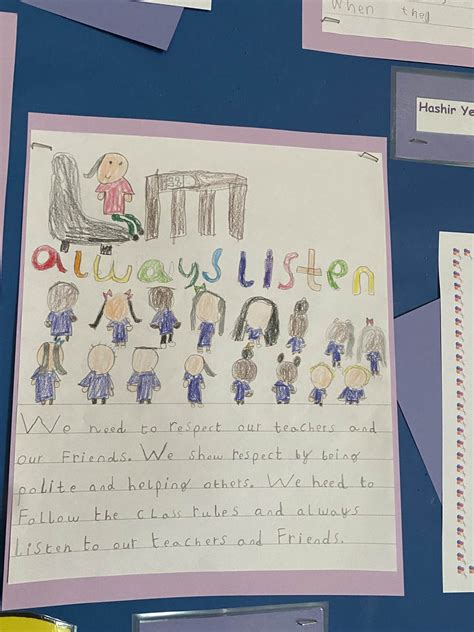 When the
Hashir Ye
always listen
We need to respect our teachers and
our Friends. We show respect by being
polite and helping others. We need to
Follow the class rules and always
Listen to our teachers and Friends.